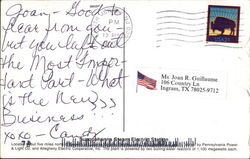 Joan - Good to
hear from you
but you left out
the Most Impor-
tant Part - What
is the New
Business!!!
xoxo - Candy
PM
USA
Ms. Joan R. Guillaume
106 Country Ln
Ingram, TX 78025-9712
Located about five miles
by Pennsylvania Power
& Light Co. and Allegheny Electric Cooperative, Inc. The plant is powered by two boiling water reactors of 1,100 megawatts each.